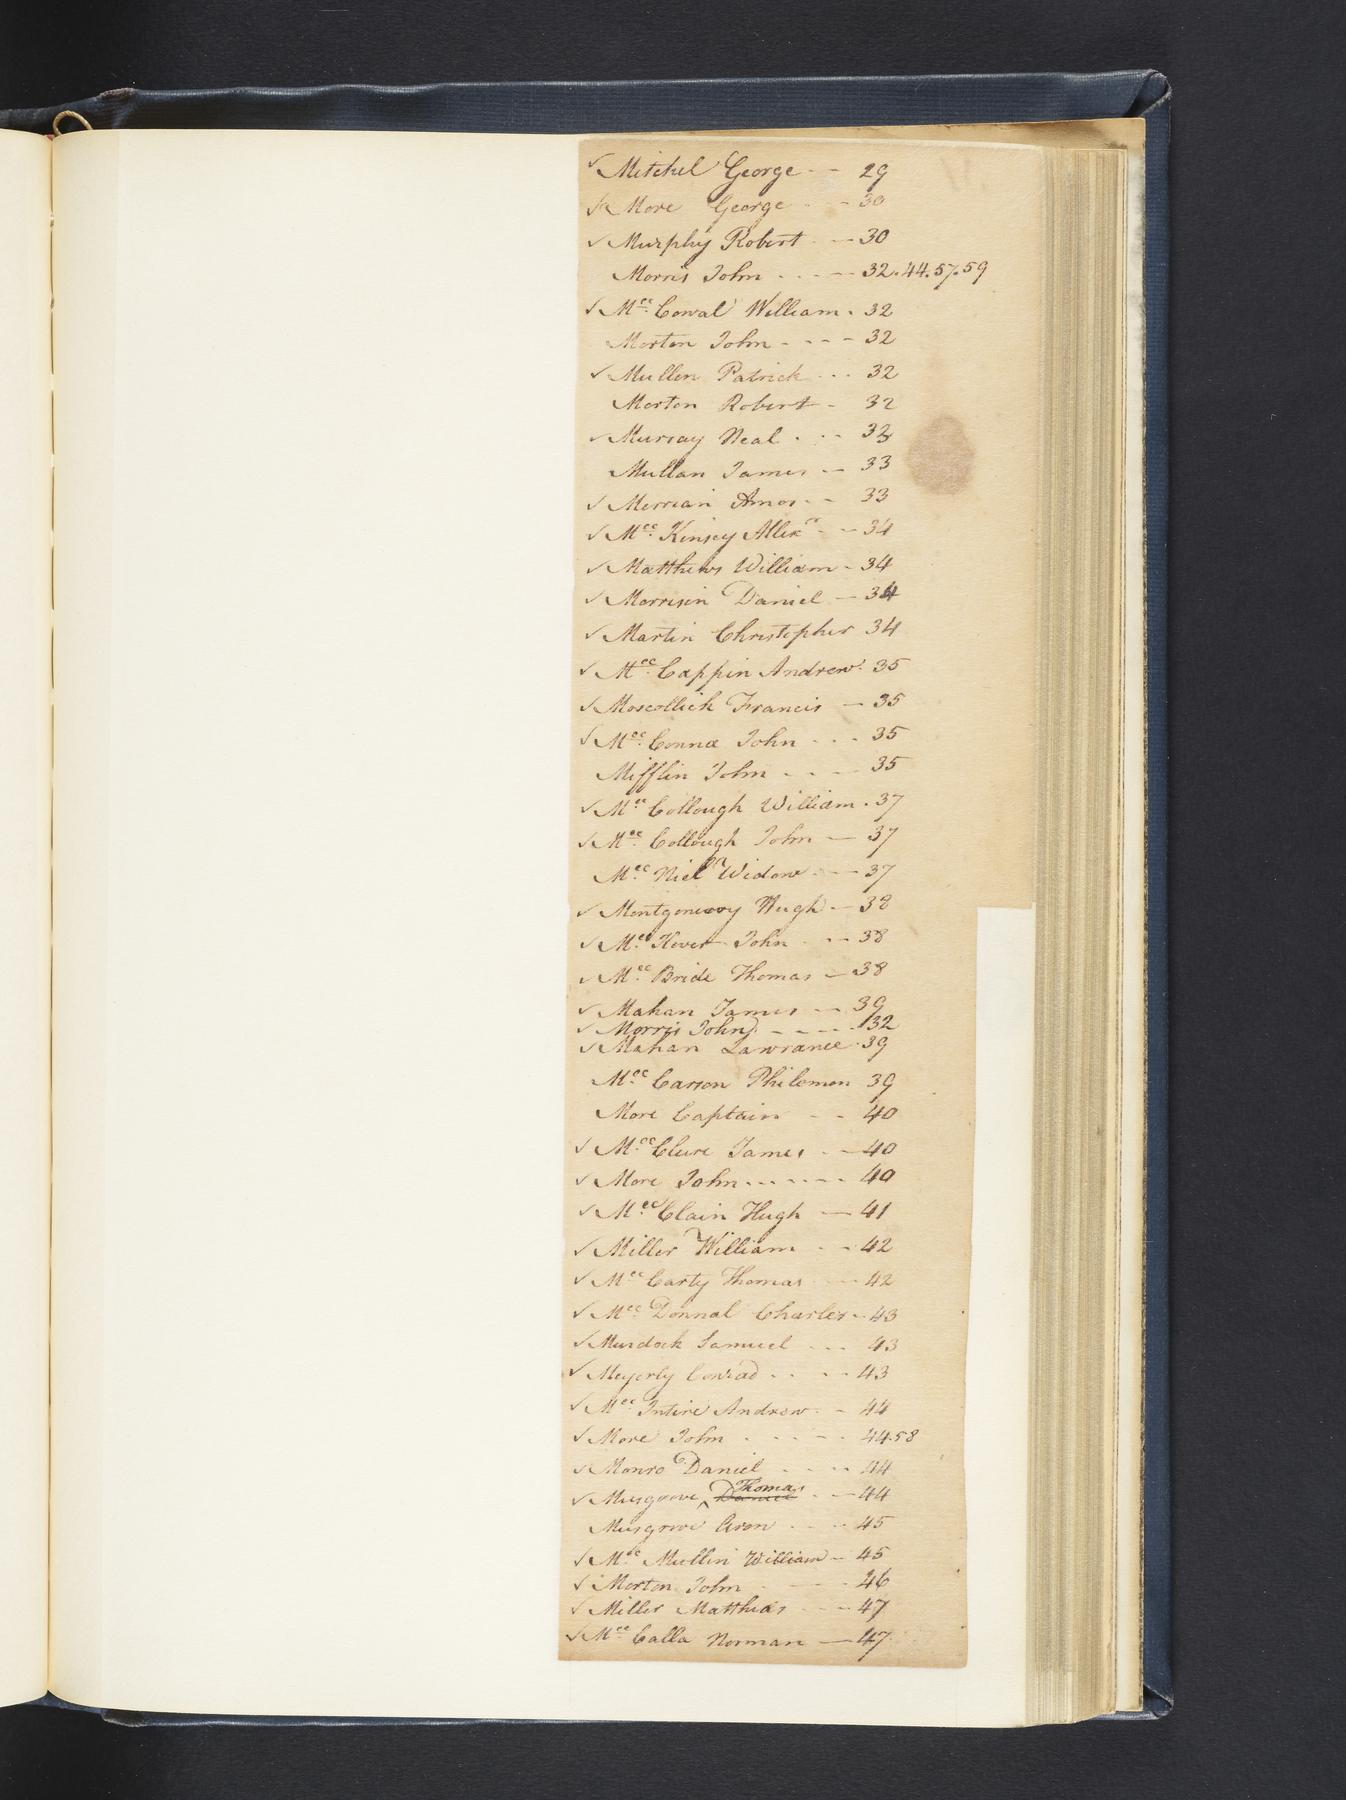 ✓ Mitchel George - - 29
✓ More George - - 30
✓ Murphy Robert - - 30
Morris John - - - - 32.44.57.59
✓ Mcc Cowal William - 32
Morton John - - - - 32
✓ Mullen Patrick - - - 32
Morton Robert - 32
✓ Murray Neal - - - 32
Mullan James - - 33
✓ Merrian Amos - - 33
✓ Mcc Kinsey Allexr - - 34
✓ Matthews William - 34
✓ Morrisin Daniel - 34
✓ Martin Christopher 34
✓ Mcc Cappin Andrew 35
✓ Moscollick Francis - 35
✓ Mcc Conna John - - - 35
Mifflin John - - - 35
✓ Mcc Collough William - 37
✓ Mcc Collough John - 37
Mcc Niel Widow - - 37
✓ Montgomery Hugh - 38
✓ Mcc Kever John - - - 38
✓ Mcc Bride Thomas - 38
✓ Mahan James - - 39
✓ Morris John - - - - 132
✓ Mahan Lawrance - 39
Mcc Carson Philemon 39
More Captain - - 40
✓ Mcc Clure James - - 40
✓ More John - - - - - - 40
✓ Mcc Clain Hugh - 41
✓ Miller William - - 42
✓ Mcc Carty Thomas - - 42
✓ Mcc Donnal Charles - - 43
✓ Murdock Samuel - - - 43
✓ Meyerly Conrad - - - - 43
✓ Mcc Intire Andrew - - 44
✓ More John - - - - - 44.58
✓ Monro Daniel - - - - 44
✓ Musgrove ^ Thomas Daniel - - 44
Musgrove Aron - - - 45
✓ Mcc Mullin William - 45
✓ Morton John - - - 46
✓ Miller Matthias - - - 47
✓ Mcc Calla Norman - 47